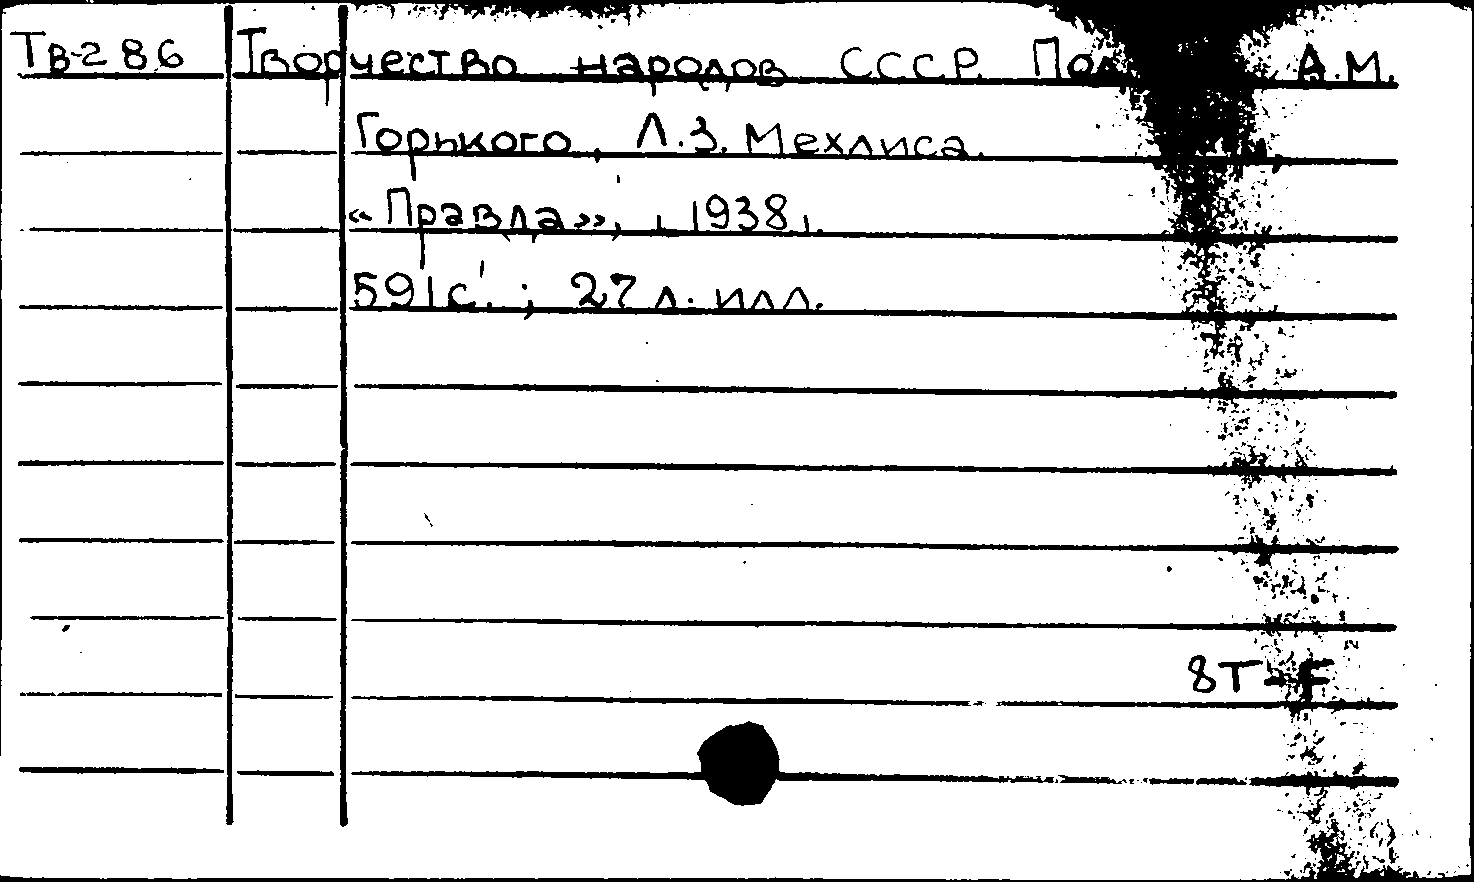 Тв-286 Творчество народов СССР. Под А.М.
Горького, Л.З. Мехлиса.
«Правда», 1938.
591с.; 27 л. илл.
8Т-F